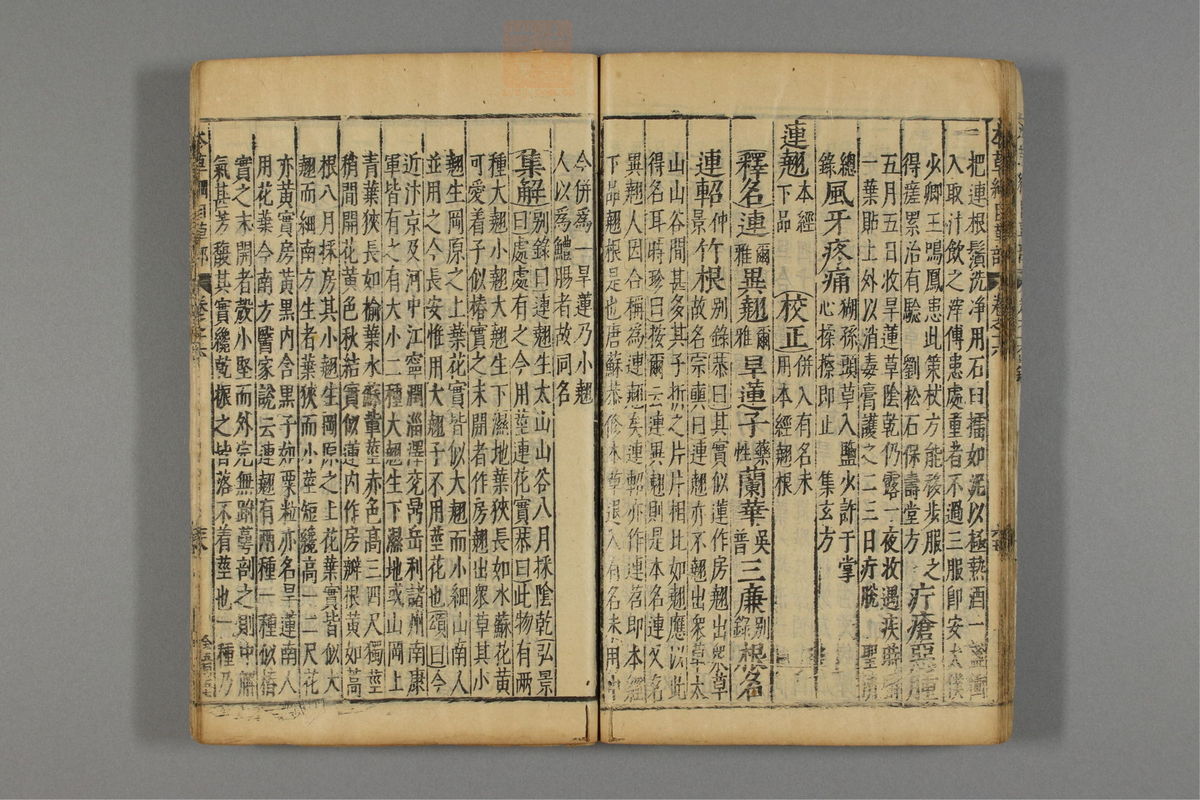 一把連根鬚洗净用石臼擂如泥以極熱酒一盞衝
入取汁飲之滓傅患處重者不過三服卽安太僕
少卿王鳴鳳患此策杖方能移步服之
得瘥累治有驗 劉松石保壽堂方 疔瘡惡腫
五月五日收旱蓮草陰乾仍露一夜收遇疾
一葉貼上外以消毒膏護之二三日疔脫 聖
總錄 風牙疼痛 猢孫頭草入鹽火許于掌
心揉擦即止 集玄方
連翹 本經下品 校正 併入有名未用本經翹根
釋名 連 爾雅 異翹 爾雅 旱蓮子 藥性 蘭華 吳普 三廉 別錄 根名
連軺 仲景 竹根 別錄 恭曰其實似蓮作房翹出衆草
故名宗奭曰連翹亦不翹出衆草太
山山谷間甚多其子折之片片相比如翹應以此
得名耳時珍曰按爾云連異翹則是本名連又名
異翹人因合稱爲連翹矣連軺亦作連苕即本經
下品翹根是也唐蘇恭修本草退入有名未用
今併爲一旱蓮乃小翹
人以爲鱧腸者故同名
集解 別錄曰連翹生太山山谷八月採陰乾弘景
曰處處有之今用莖連花實恭曰此物有兩
種大翹小翹大翹生下濕地葉狹長如水蘇花黃
可愛着子似椿實之未開者作房翹出衆草其小
翹生岡原之上葉花實皆似大翹而小細山南人
並用之今長安惟用大翹子不用莖花也頌曰今
近汴京及河中江寧潤淄澤兖鼎岳利諸州南康
軍皆有之有大小二種大翹生下濕地或山岡上
青葉狹長如榆葉水蘇輩莖赤色高三四尺獨莖
稍間開花黃色秋結實似蓮内作房瓣根黃如蒿
根八月採房其小翹生岡原之上花葉實皆似大
翹而細南方生者葉狹而小莖短纔高一二尺花
亦黃實房黃黑内含黑子如粟粒亦名旱蓮南人
用花葉今南方醫家說云連翹有兩種一種似椿
實之未開者殼小堅而外完無跗萼剖之則中解
氣甚芳馥其實纔乾振之皆落不着莖也一種乃